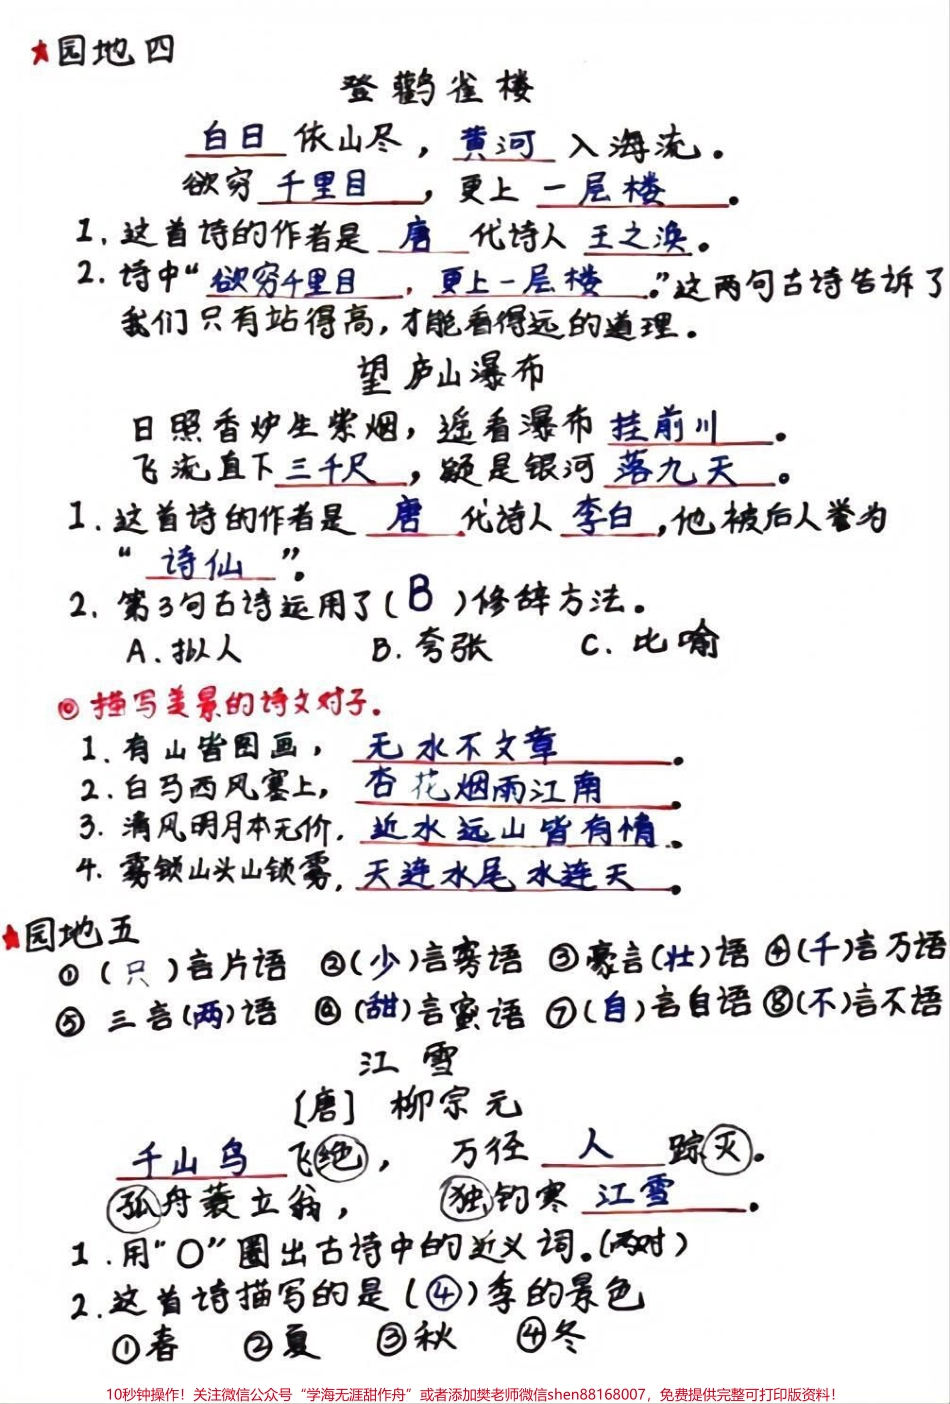 ★园地四
登鹳雀楼
白日依山尽，黄河入海流。
欲穷千里目，更上一层楼。
1.这首诗的作者是唐代诗人王之涣。
2.诗中“欲穷千里目，更上一层楼。”这两句古诗告诉了
我们只有站得高,才能看得远的道理。
望庐山瀑布
日照香炉生紫烟，遥看瀑布挂前川。
飞流直下三千尺，疑是银河落九天。
1.这首诗的作者是唐代诗人李白,他被后人誉为
“诗仙”。
2.第3句古诗运用了(B)修辞方法。
A.拟人 B.夸张 C.比喻
◎描写美景的诗文对子。
1.有山皆图画，无水不文章。
2.白马西风塞上，杏花烟雨江南。
3.清风明月本无价,近水远山皆有情。
4.雾锁山头山锁雾,天连水尾水连天。
★园地五
①(只)言片语 ②(少)言寡语 ③豪言(壮)语 ④(千)言万语
⑤三言(两)语 ⑥(甜)言蜜语 ⑦(自)言自语 ⑧(不)言不语
江雪
[唐] 柳宗元
千山鸟飞绝，万径人踪灭。
孤舟蓑立翁，独钓寒江雪。
1.用“○”圈出古诗中的近义词。(两对)
2.这首诗描写的是(④)季的景色
①春 ②夏 ③秋 ④冬
10秒钟操作！关注微信公众号“学海无涯甜作舟”或者添加樊老师微信shen88168007，免费提供完整可打印版资料！